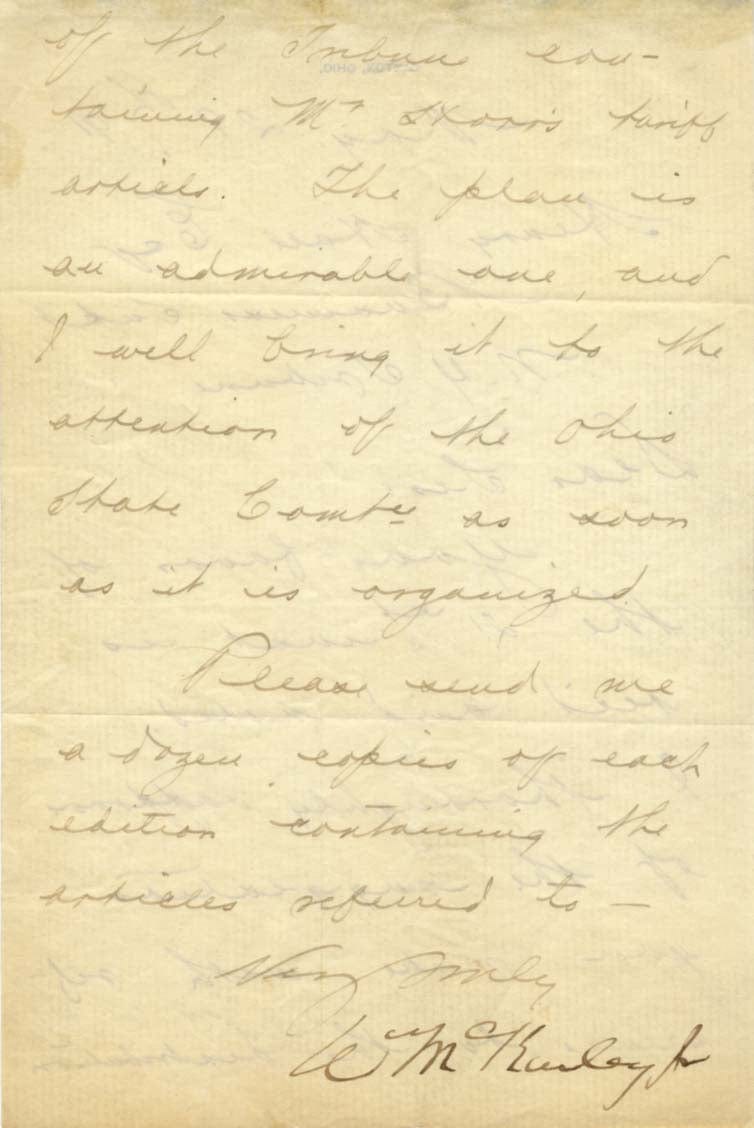 of the Tribune con-
taining Mr Storrs tariff
article. The plan is
an admirable one, and
I will bring it to the
attention of the Ohio
State Comtee as soon
as it is organized
Please send me
a dozen copies of each
edition containing the
articles referred to —
Very Truly
Wm McKinley Jr